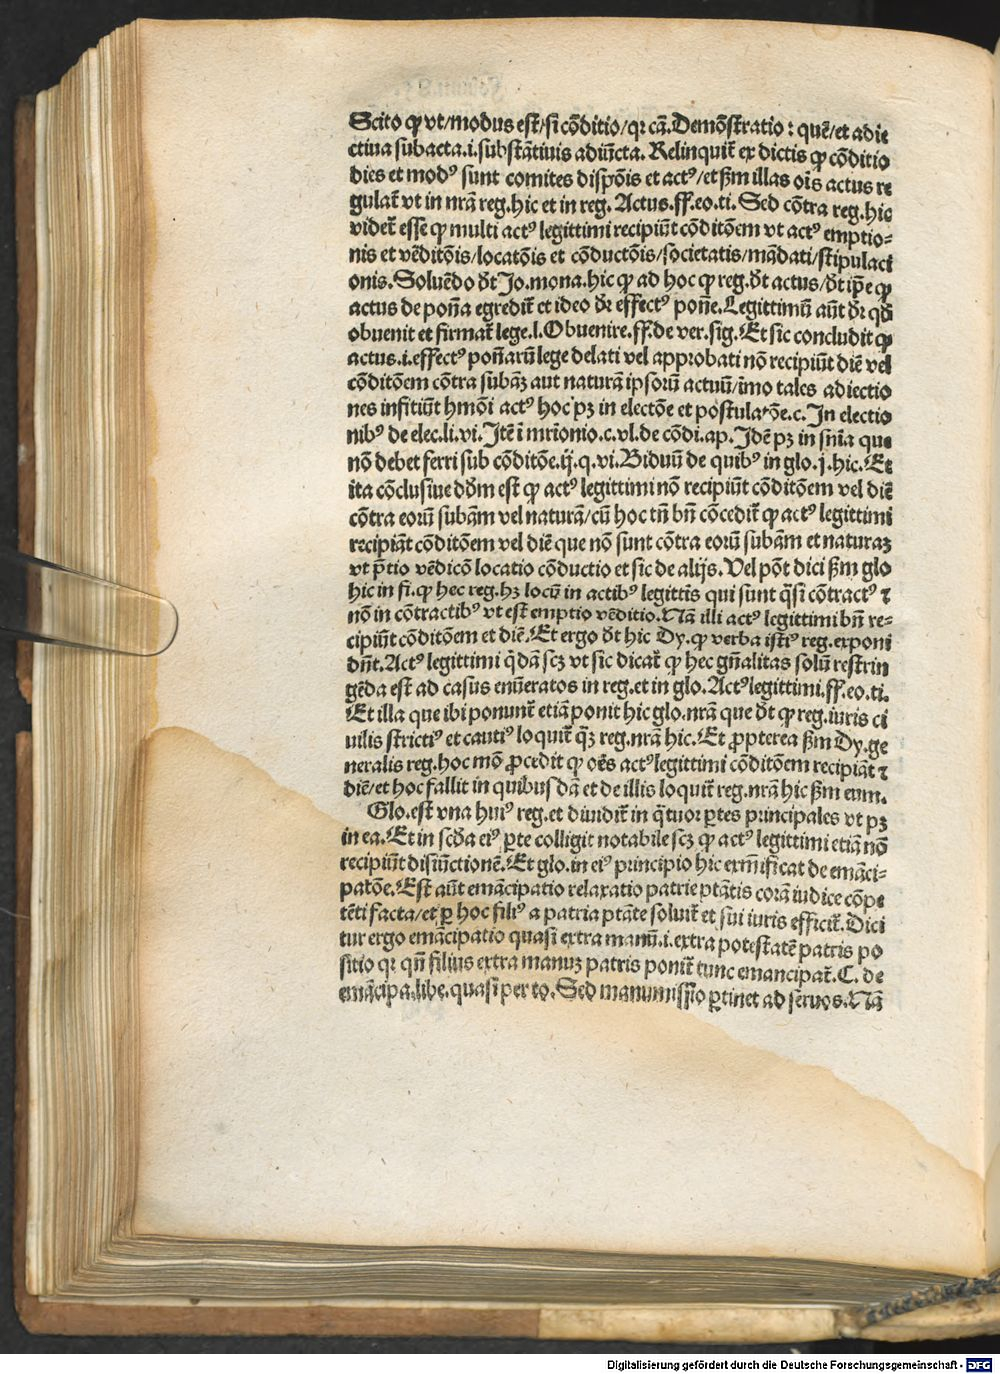 Scito ꝙ vt/modus est/si cōditio/qꝛ cā. Demōstratio: quē/et adie
ctiua subacta.i.substātiuis adiūcta. Relinquit̄ ex dictis ꝙ cōditio
dies et modꝰ sunt comites dispōis et actꝰ/et ẜm illas oīs actus re
gulat̄ vt in nrā reg.hic et in reg. Actus.ff.eo.ti. Sed cōtra reg.hic
videt̄ esse ꝙ multi actꝰ legittimi recipiūt cōditōem vt actꝰ emptio⸗
nis et vēditōis/locatōis et cōductōis/societatis/mādati/stipulaci
onis. Soluēdo dt̄ Jo.mona.hic ꝙ ad hoc ꝙ reg.dt̄ actus/dt̄ ip̄e ꝙ
actus de poñā egredit̄ et ideo dr̄ effectꝰ poñe. Legittimū aūt dr̄ qd̄
obuenit et firmat̄ lege.l. Obuenire.ff.de ver.sig. Et sic concludit ꝙ
actus.i.effectꝰ poñarū lege delati vel approbati nō recipiūt diē vel
cōditōem cōtra subāꝫ aut naturā ipsorū actuū/imo tales adiectio
nes infitiūt hmōi actꝰ hoc pꝫ in electōe et postulatōe.c. In electio
nibꝰ de elec.li.vi. Itē ī mr̄ionio.c.vl.de cōdi.ap. Idē pꝫ in sn̄ia que
nō debet ferri sub cōditōe.ij.q.vi. Biduū de quibꝰ in glo.j.hic. Et
ita cōclusiue dd̄m est ꝙ actꝰ legittimi nō recipiūt cōditōem vel diē
cōtra eorū subām vel naturā/cū hoc tn̄ bn̄ cōcedit̄ ꝙ actꝰ legittimi
recipiāt cōditōem vel diē que nō sunt cōtra eorū subām et naturaꝫ
vt p̄tio vēdicō locatio cōductio et sic de alijs. Vel pōt dici ẜm glo
hic in fi.ꝙ hec reg.hꝫ locū in actibꝰ legittīs qui sunt q̄si cōtractꝰ ⁊
nō in cōtractibꝰ vt est emptio vēditio. Nā illi actꝰ legittimi bn̄ re⸗
cipiūt cōditōem et diē. Et ergo dt̄ hic Dy.ꝙ verba istiꝰ reg.exponi
dn̄t. Actꝰ legittimi q̄dā scꝫ vt sic dicat̄ ꝙ hec gn̄alitas solū restrin
gēda est ad casus enūeratos in reg.et in glo. Actꝰ legittimi.ff.eo.ti.
Et illa que ibi ponunt̄ etiā ponit hic glo.nrā que dt̄ ꝙ reg.iuris ci
uilis strictiꝰ et cautiꝰ loquit̄ q̄ꝫ reg.nrā hic. Et ꝓpterea ẜm Dy.ge
neralis reg.hoc mō ꝓcedit ꝙ oēs actꝰ legittimi cōditōem recipiāt ⁊
diē/et hoc fallit in quibusdā et de illis loquit̄ reg.nrā hic ẜm eum.
Glo.est vna huiꝰ reg.et diuidit̄ in q̄tuor ꝑtes principales vt pꝫ
in ea. Et in scd̄a eiꝰ ꝑte colligit notabile scꝫ ꝙ actꝰ legittimi etiā nō
recipiūt disiūctionē. Et glo.in eiꝰ principio hic exm̄ificat de emāci⸗
patōe. Est aūt emācipatio relaxatio patrie ptātis corā iudice cōpe
tēti facta/et ꝑ hoc filiꝰ a patria ptāte soluit̄ et sui iuris efficit̄. Dici
tur ergo emācipatio quasi extra manū.i.extra potestatē patris po
sitio qꝛ qn̄ filius extra manuꝫ patris ponit̄ tunc emancipat̄. C. de
emācipa.libe.quasi per to. Sed manumissio ꝑtinet ad seruos. Nā
Digitalisierung gefördert durch die Deutsche Forschungsgemeinschaft - DFG